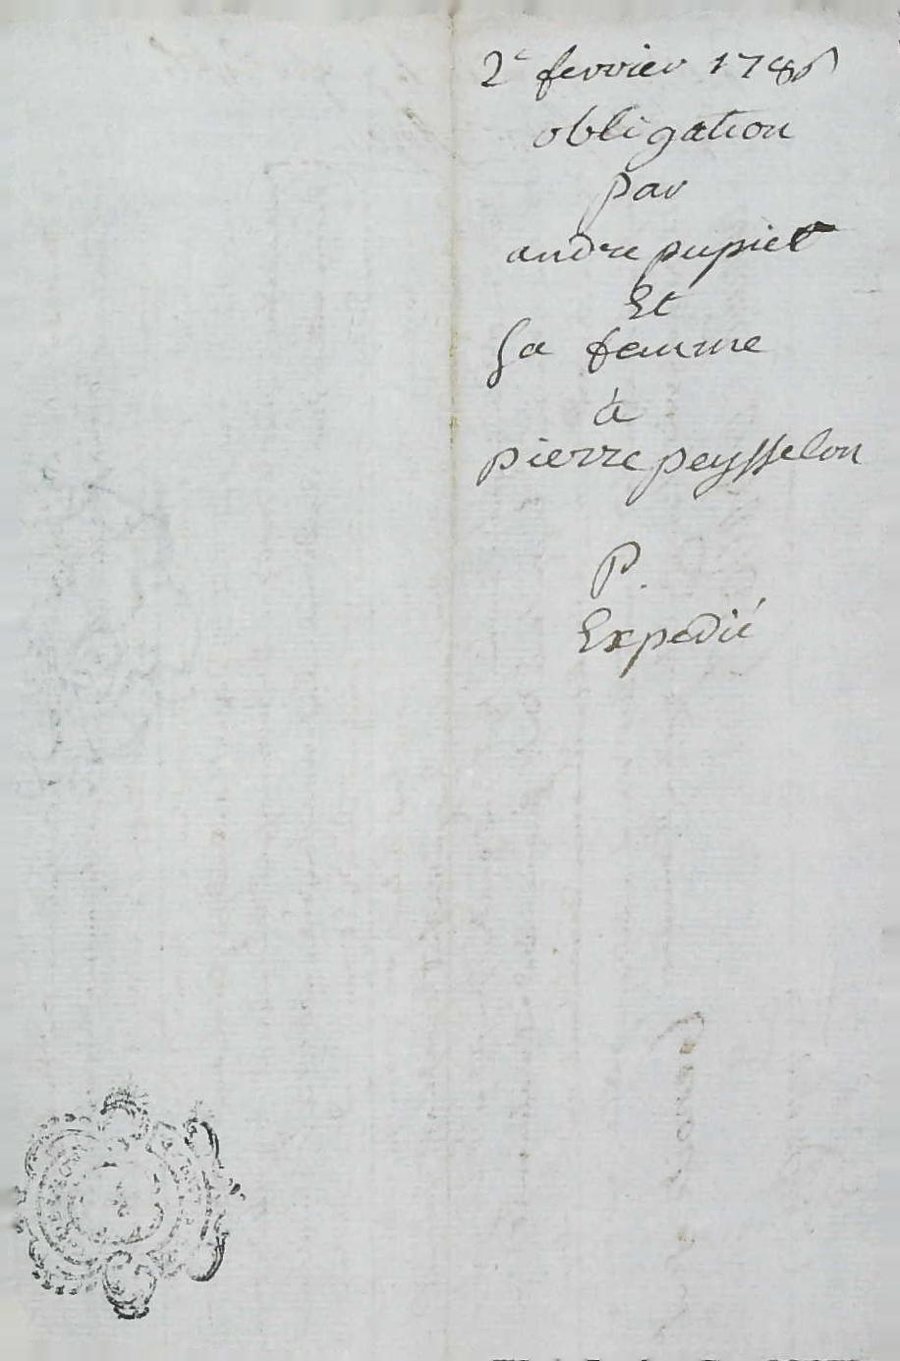 2e fevrier 1786
obligation
par
andre pupiet
Et
Sa femme
à
pierre peysselon
P.
Expedié